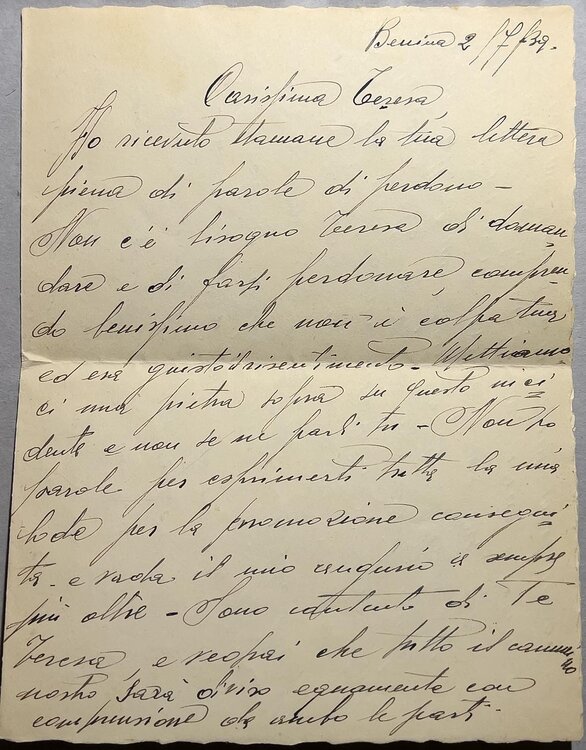 Benina 2/7/39.
Carissima Teresa
Ho ricevuto stamane la tua lettera
piena di parole di perdono -
Non c'è bisogno Teresa di doman-
dare e di farsi perdonare, compren-
do benissimo che non è colpa tua
ed era giusto il risentimento - Mettiamo-
ci una pietra sopra su questo inci-
dente e non se ne parli più - Non ho
parole per esprimerti tutta la mia
lode per la promozione consegui-
ta e vada il mio augurio a sempre
più oltre - Sono contento di Te
Teresa, e vedrai che tutto il cammino
nostro sarà diviso egualmente con
comprensione da ambo le parti.